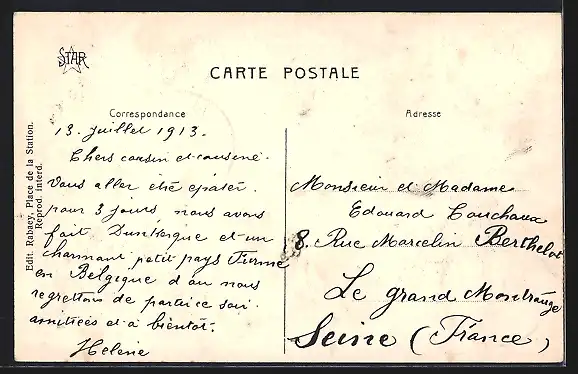 STAR
CARTE POSTALE
Correspondance
Adresse
Edit. Rabaey, Place de la Station.
Reprod. interd.
13. juillet 1913.
Chers cousin et cousine.
Vous aller être épater.
pour 3 jours nous avons
fait Dunkerque et un
charmant petit pays Furne
en Belgique d'ou nous
regrettons de partir ce soir.
amitiées et à bientôt.
Helene
Monsieur et Madame
Edouard Couchaux
8. Rue Marcelin Berthelot
Le grand Montrouge
Seine (France)